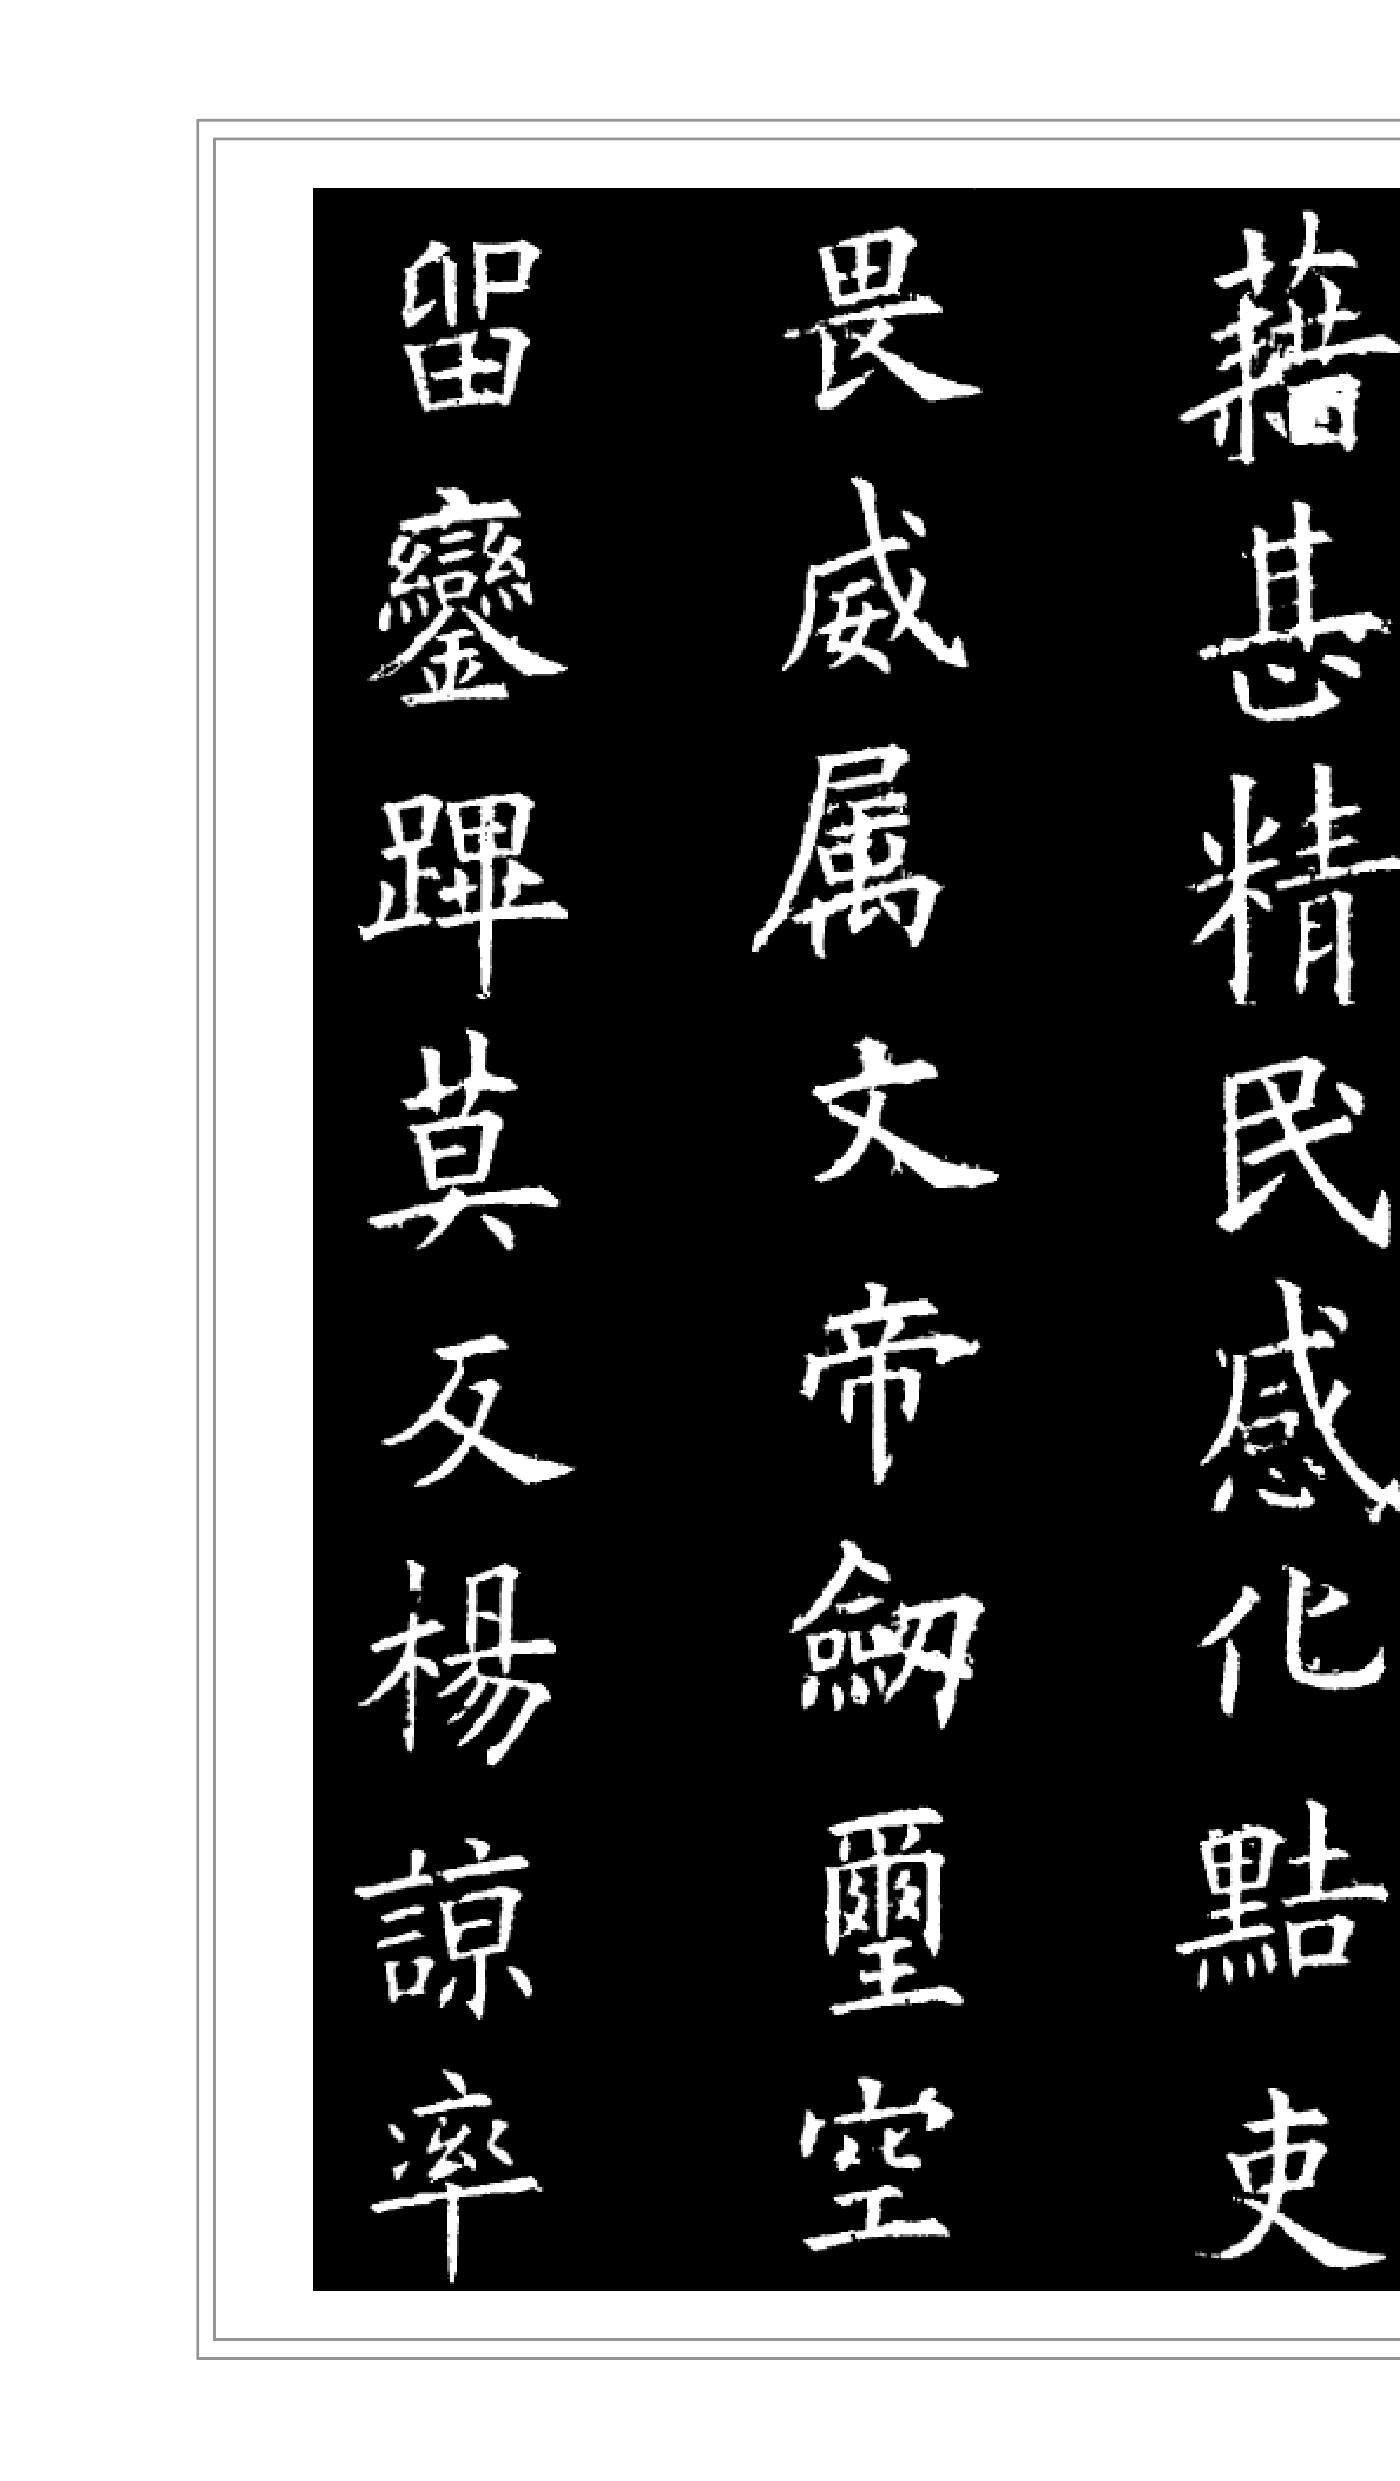 藉甚精民感化黠吏
畏威属文帝劒璽空
留鑾蹕莫反楊諒率